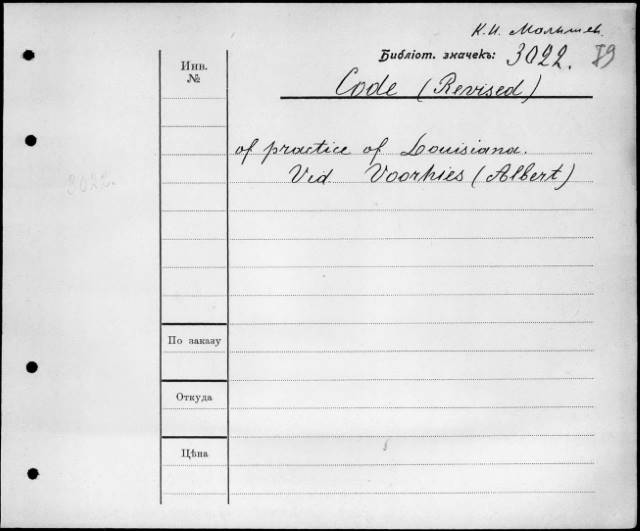 К. И. Малышев.
Библіот. значекъ: 3022. 89
Инв.
№
Code (Revised)
of practice of Louisiana.
Vid Voorhies (Albert)
3022.
По заказу
Откуда
Цѣна